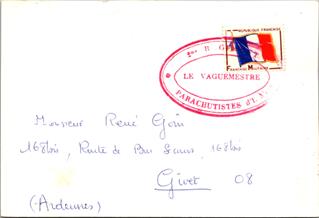 RÉPUBLIQUE FRANÇAISE
FRANCHISE MILITAIRE
LE VAGUEMESTRE
PARACHUTISTES
Monsieur René
168bis, Route de Bon Secours, 168bis
Givet 08
(Ardennes)